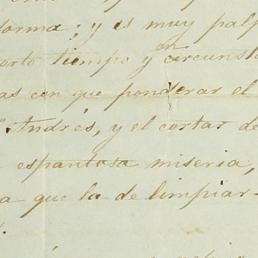 forma; y es muy palp
corto tiempo y en circunsta
as con que ponderar el
"Andrés, y el cortar de
espantosa miseria,
a que la de limpiar-